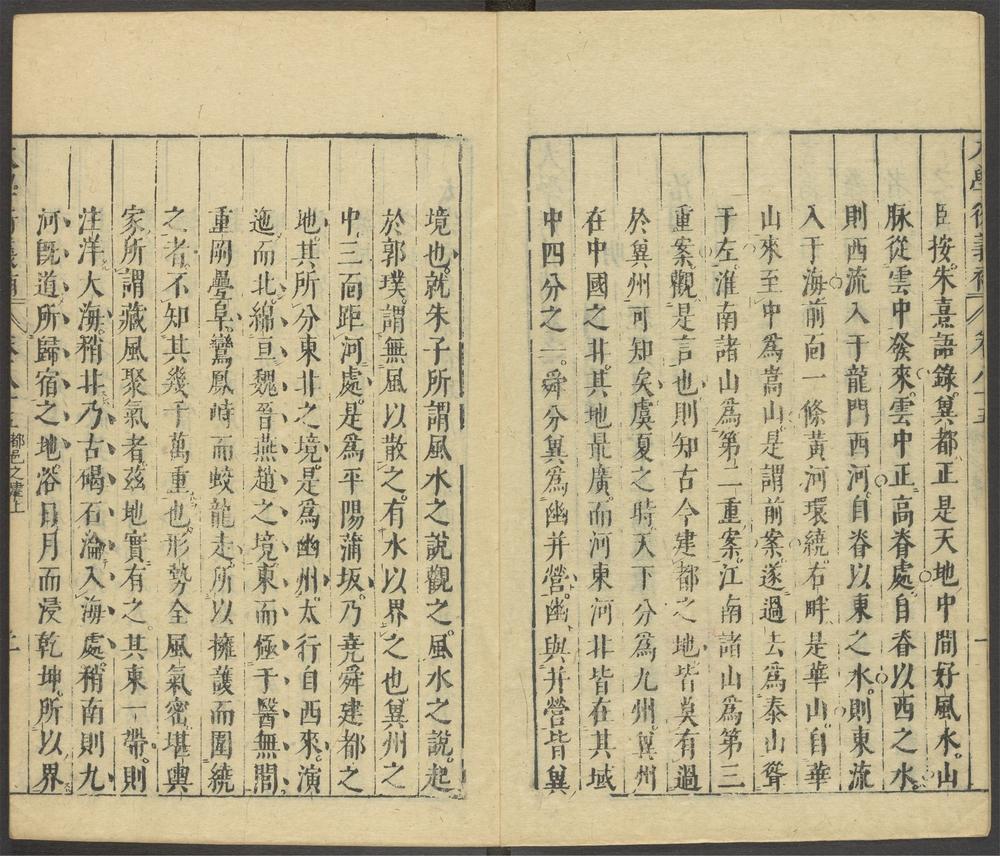 大學衍義補 卷八十五
臣按朱熹語錄冀都正是天地中間好風水山
脉從雲中發來雲中正高脊處自脊以西之水
則西流入于龍門西河自脊以東之水則東流
入于海前面一條黃河環繞右畔是華山自華
山來至中爲嵩山是謂前案遂過去爲泰山聳
于左淮南諸山爲第二重案江南諸山爲第三
重案觀是言也則知古今建都之地皆莫有過
於冀州可知矣虞夏之時天下分爲九州冀州
在中國之北其地最廣而河東河北皆在其域
中四分之一舜分冀爲幽并營幽與并營皆冀
境也就朱子所謂風水之說觀之風水之說起
於郭璞謂無風以散之有水以界之也冀州之
中三面距河處是爲平陽蒲坂乃堯舜建都之
地其所分東北之境是爲幽州太行自西來演
迤而北綿亘魏晉燕趙之境東而極于醫無閭
重岡疊阜鸞鳳峙而蛟龍走所以擁護而圍繞
之者不知其幾千萬重也形勢全風氣密堪輿
家所謂藏風聚氣者茲地實有之其東一帶則
汪洋大海稍北乃古碣石淪入海處稍南則九
河旣道所歸宿之地浴日月而浸乾坤所以界
都邑之建上